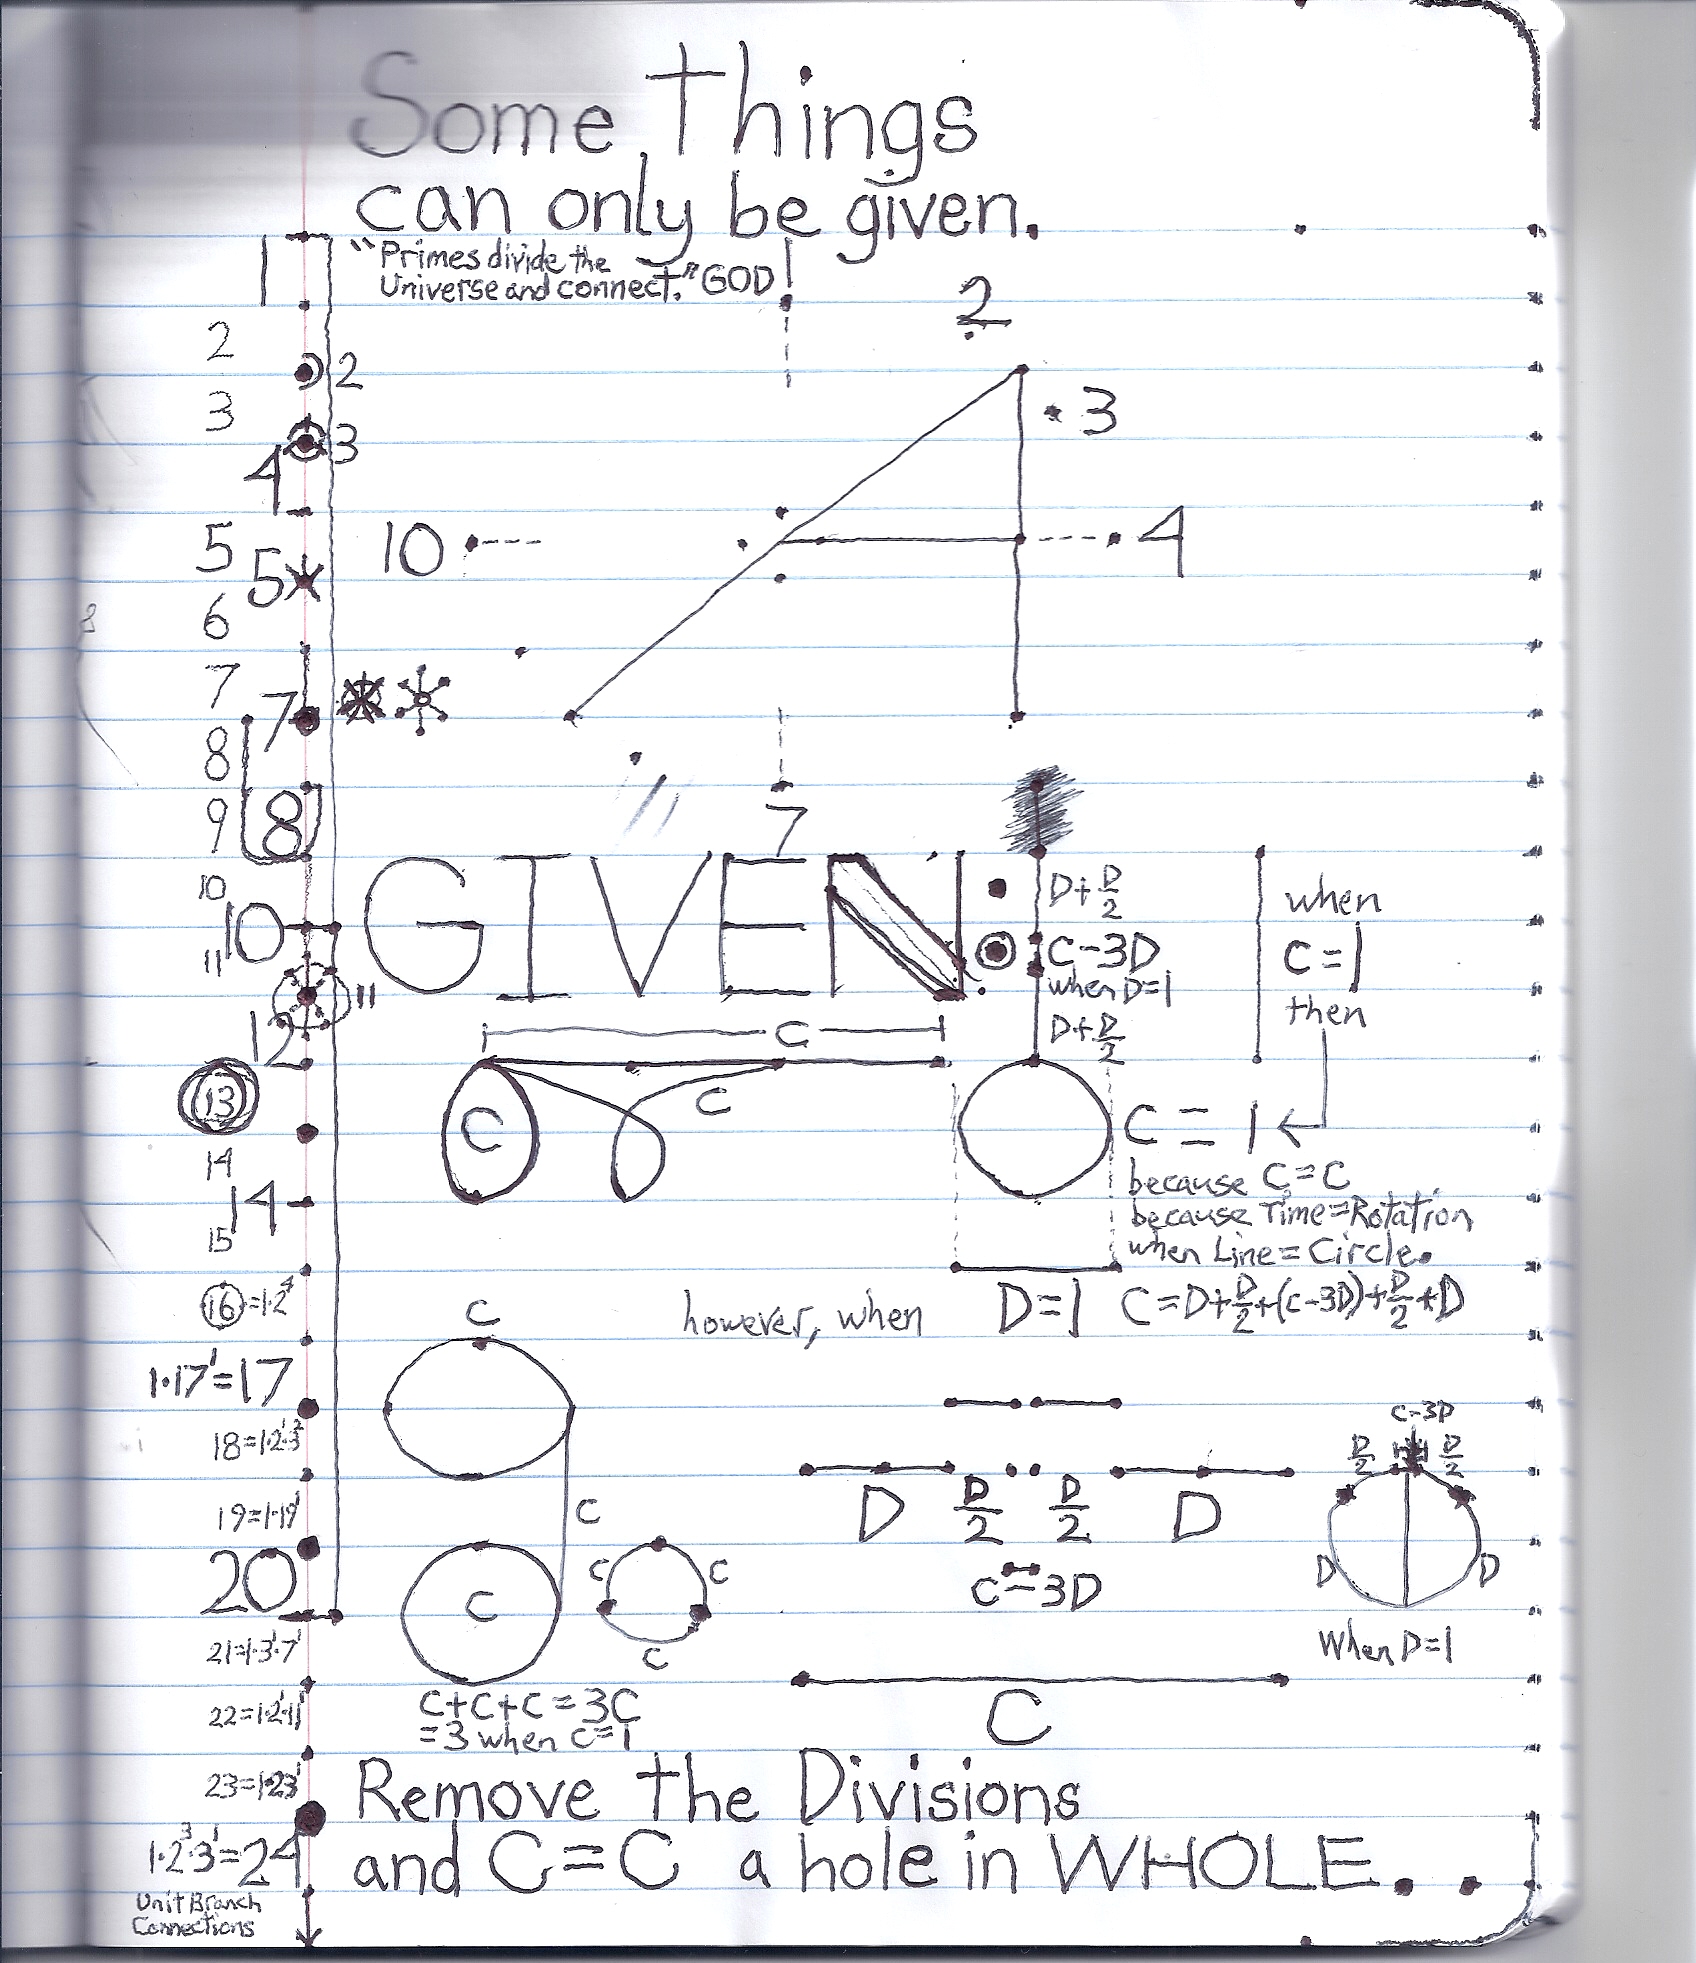 Some Things
can only be given.
"Primes divide the
Universe and connect." GOD
1
1
2
2
2
3
3
3
4
5
10
4
5
6
7
7
8
8
9
7
GIVEN
10
10
11
11
D+D/2
C-3D
when D=1
D+D/2
when
C=1
then
12
C
13
C
C
C=1
14
14
15
because C=C
because Time=Rotation
when Line=Circle.
16=1·2⁴
however, when D=1 C=D+D/2+(C-3D)+D/2+D
C
1·17¹=17
18=1·2¹·3²
C-3D
D/2 D/2
19=1·19¹
C
D D/2 D/2 D
20
C
C C
C
C-3D
D D
When D=1
21=1·3¹·7¹
22=1·2¹·11¹
C+C+C=3C
=3 when C=1
C
23=1·23¹
Remove the Divisions
1·2³·3¹=24
and C=C a hole in WHOLE. .
Unit Branch
Connections